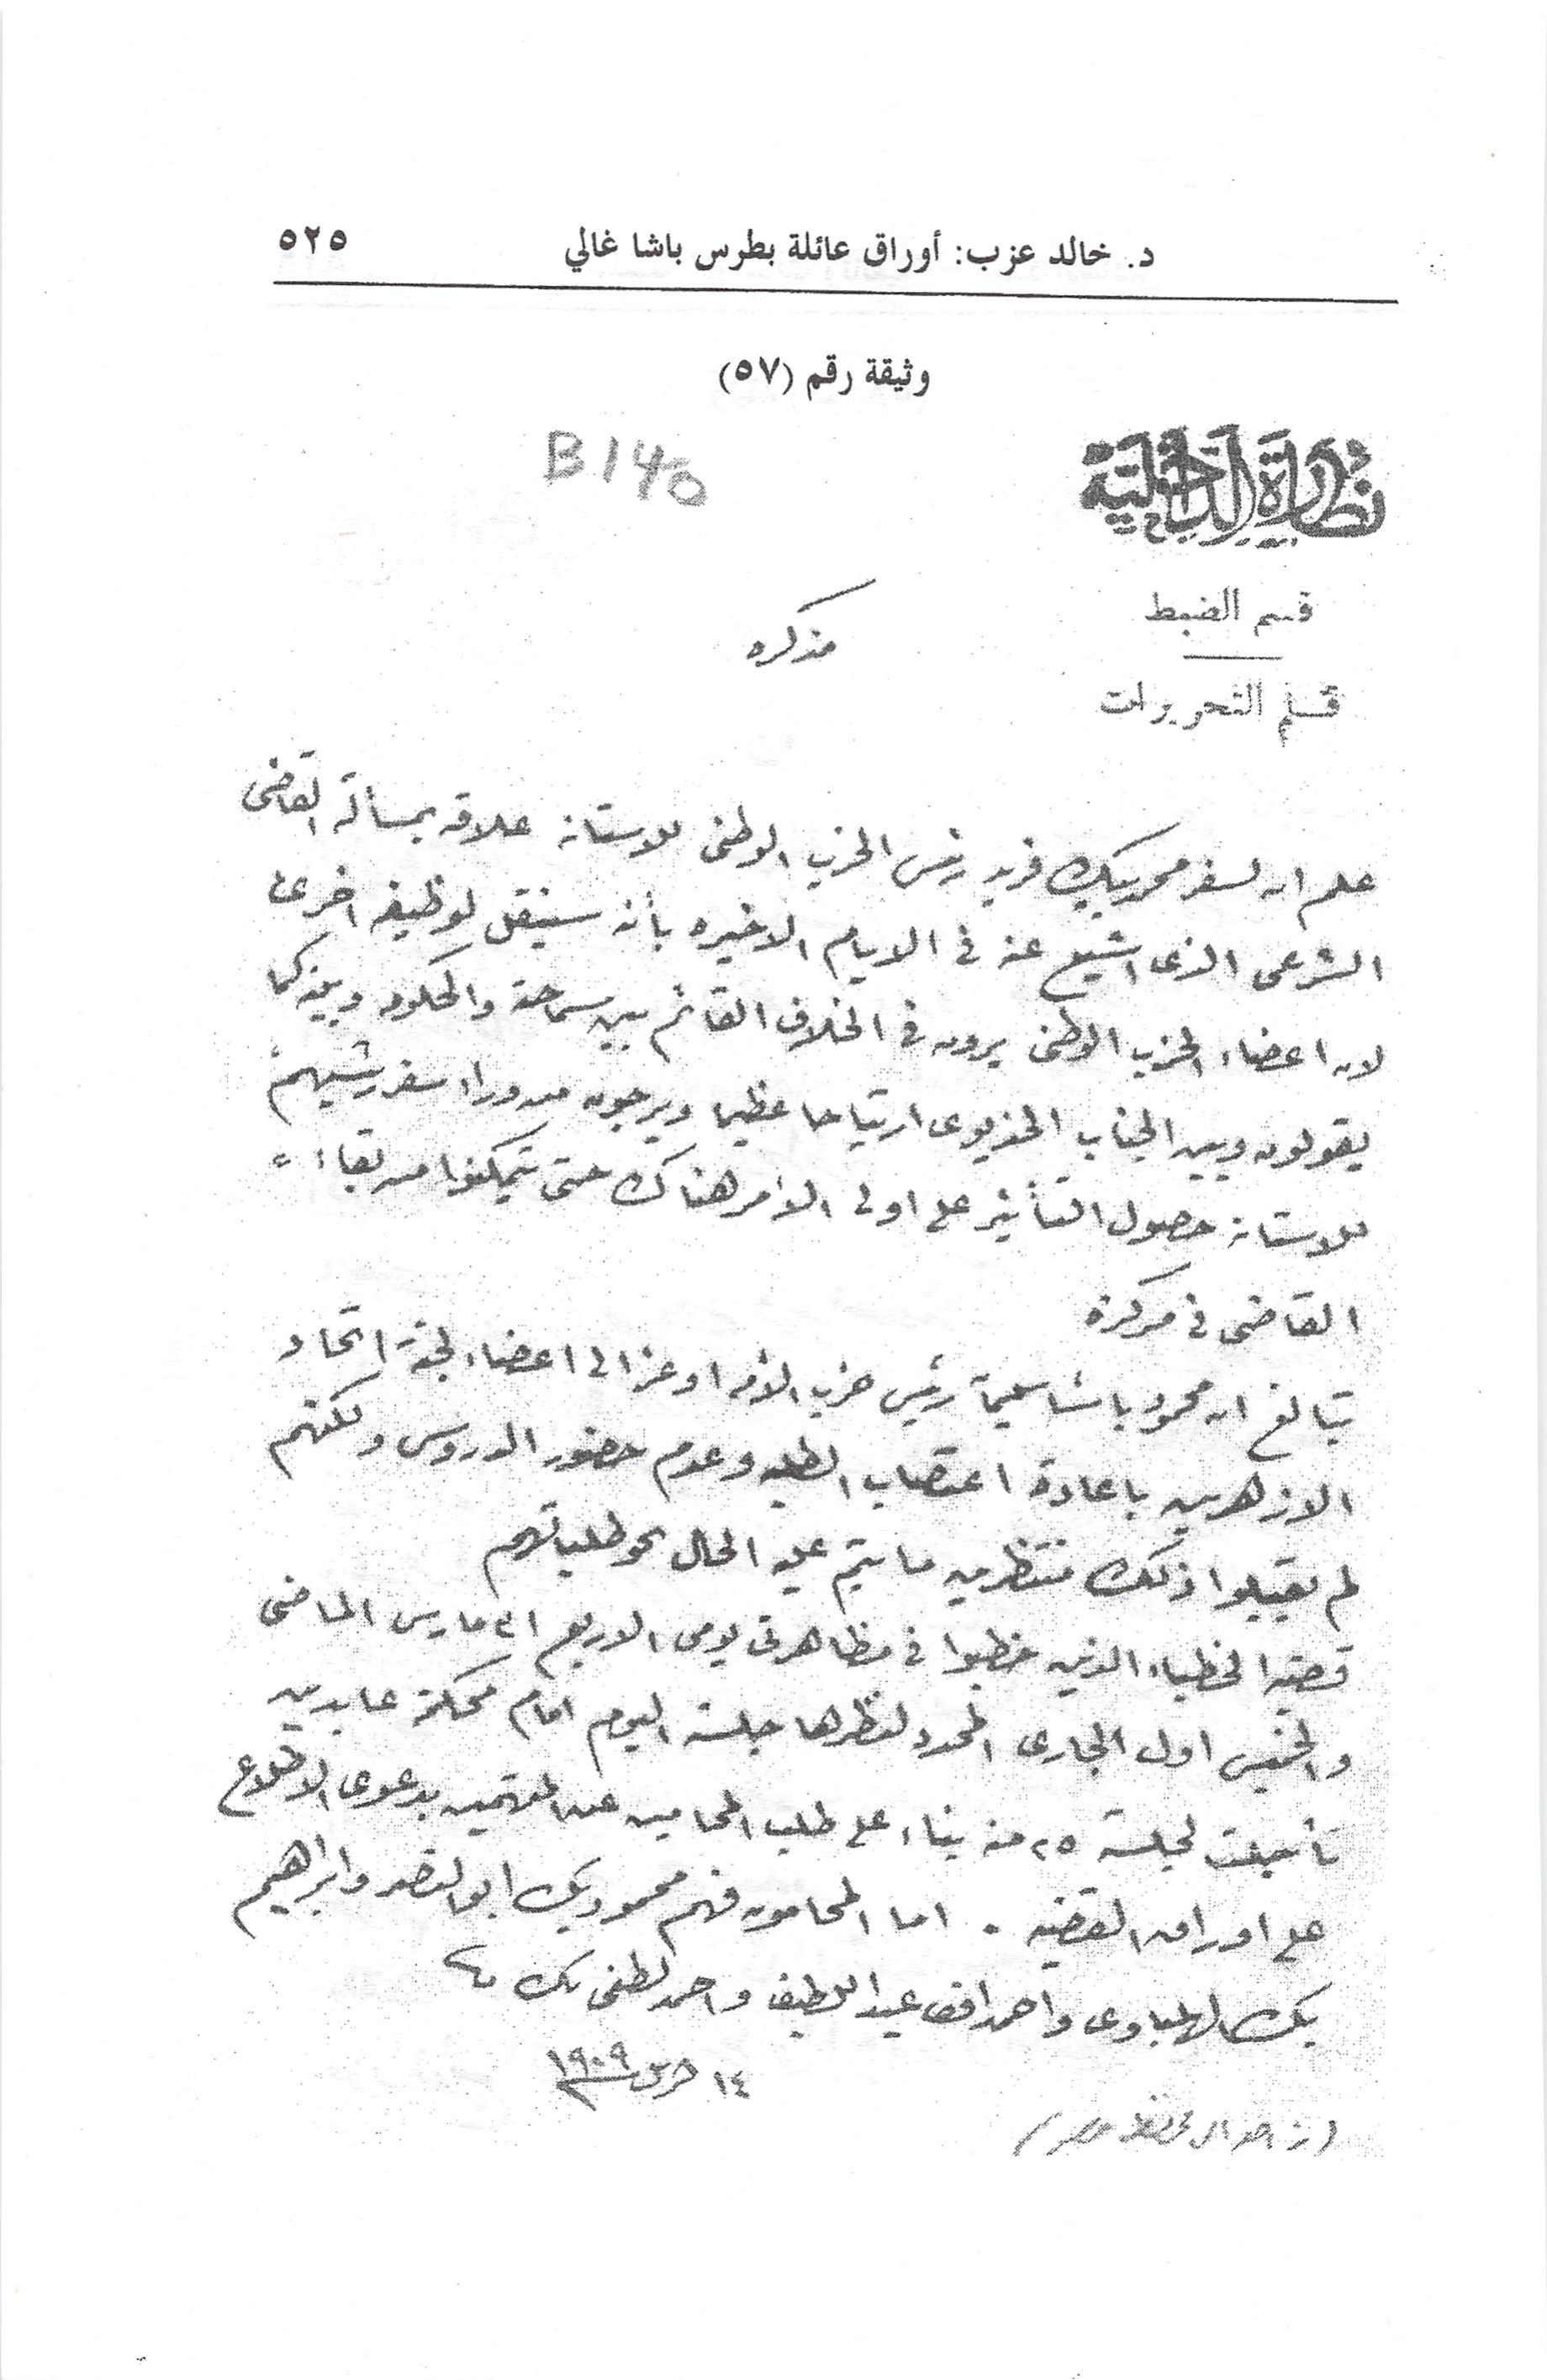 د. خالد عزب: أوراق عائلة بطرس باشا غالي ٥٢٥
وثيقة رقم (٥٧)
B 140
نظارة الداخلية
قسم الضبط
مذكره
قلم التحريرات
علم ان لسفر محمد بيك فريد رئيس الحزب الوطنى للاستانه علاقه بمسألة القاضى
الشرعى الذى اشيع عنه فى الايام الاخيره بأنه سينقل لوظيفه اخرى
لان اعضاء الحزب الوطنى يرون فى الخلاف القائم بين سماحته والحكومه وبينه كما
يقولون وبين الجناب الخديوى ارتياحا عظيما ويرجون من وراء سفر رئيسهم
للاستانه حصول التأثير على اولى الامر هناك حتى يتمكنوا من بقاء
القاضى فى مركزه
تبالغ ان محمود باشا سليمان رئيس حزب الأمه اوعز الى اعضاء لجنة اتحاد
الازهريين باعادة اعتصاب الطلبه وعدم حضور الدروس ولكنهم
لم يقبلوا ذلك منتظرين ما يتم عليه الحال نحو طلباتهم
قضية الخطباء الذين خطبوا فى مظاهرتى يومى الاربع ٣١ مارس الماضى
والخميس اول الجارى المحدد لنظرها جلسة اليوم امام محكمة عابدين
تأجلت لجلسة ٢٥ منه بناء على طلب المحامين عن المتهمين بدعوى الاطلاع
على اوراق القضيه . اما المحامون فهم محمود بيك ابو النصر وابراهيم
بيك الهلباوى واحمد افندى عبد اللطيف واحمد لطفى بك
١٤ ١٩٠٩